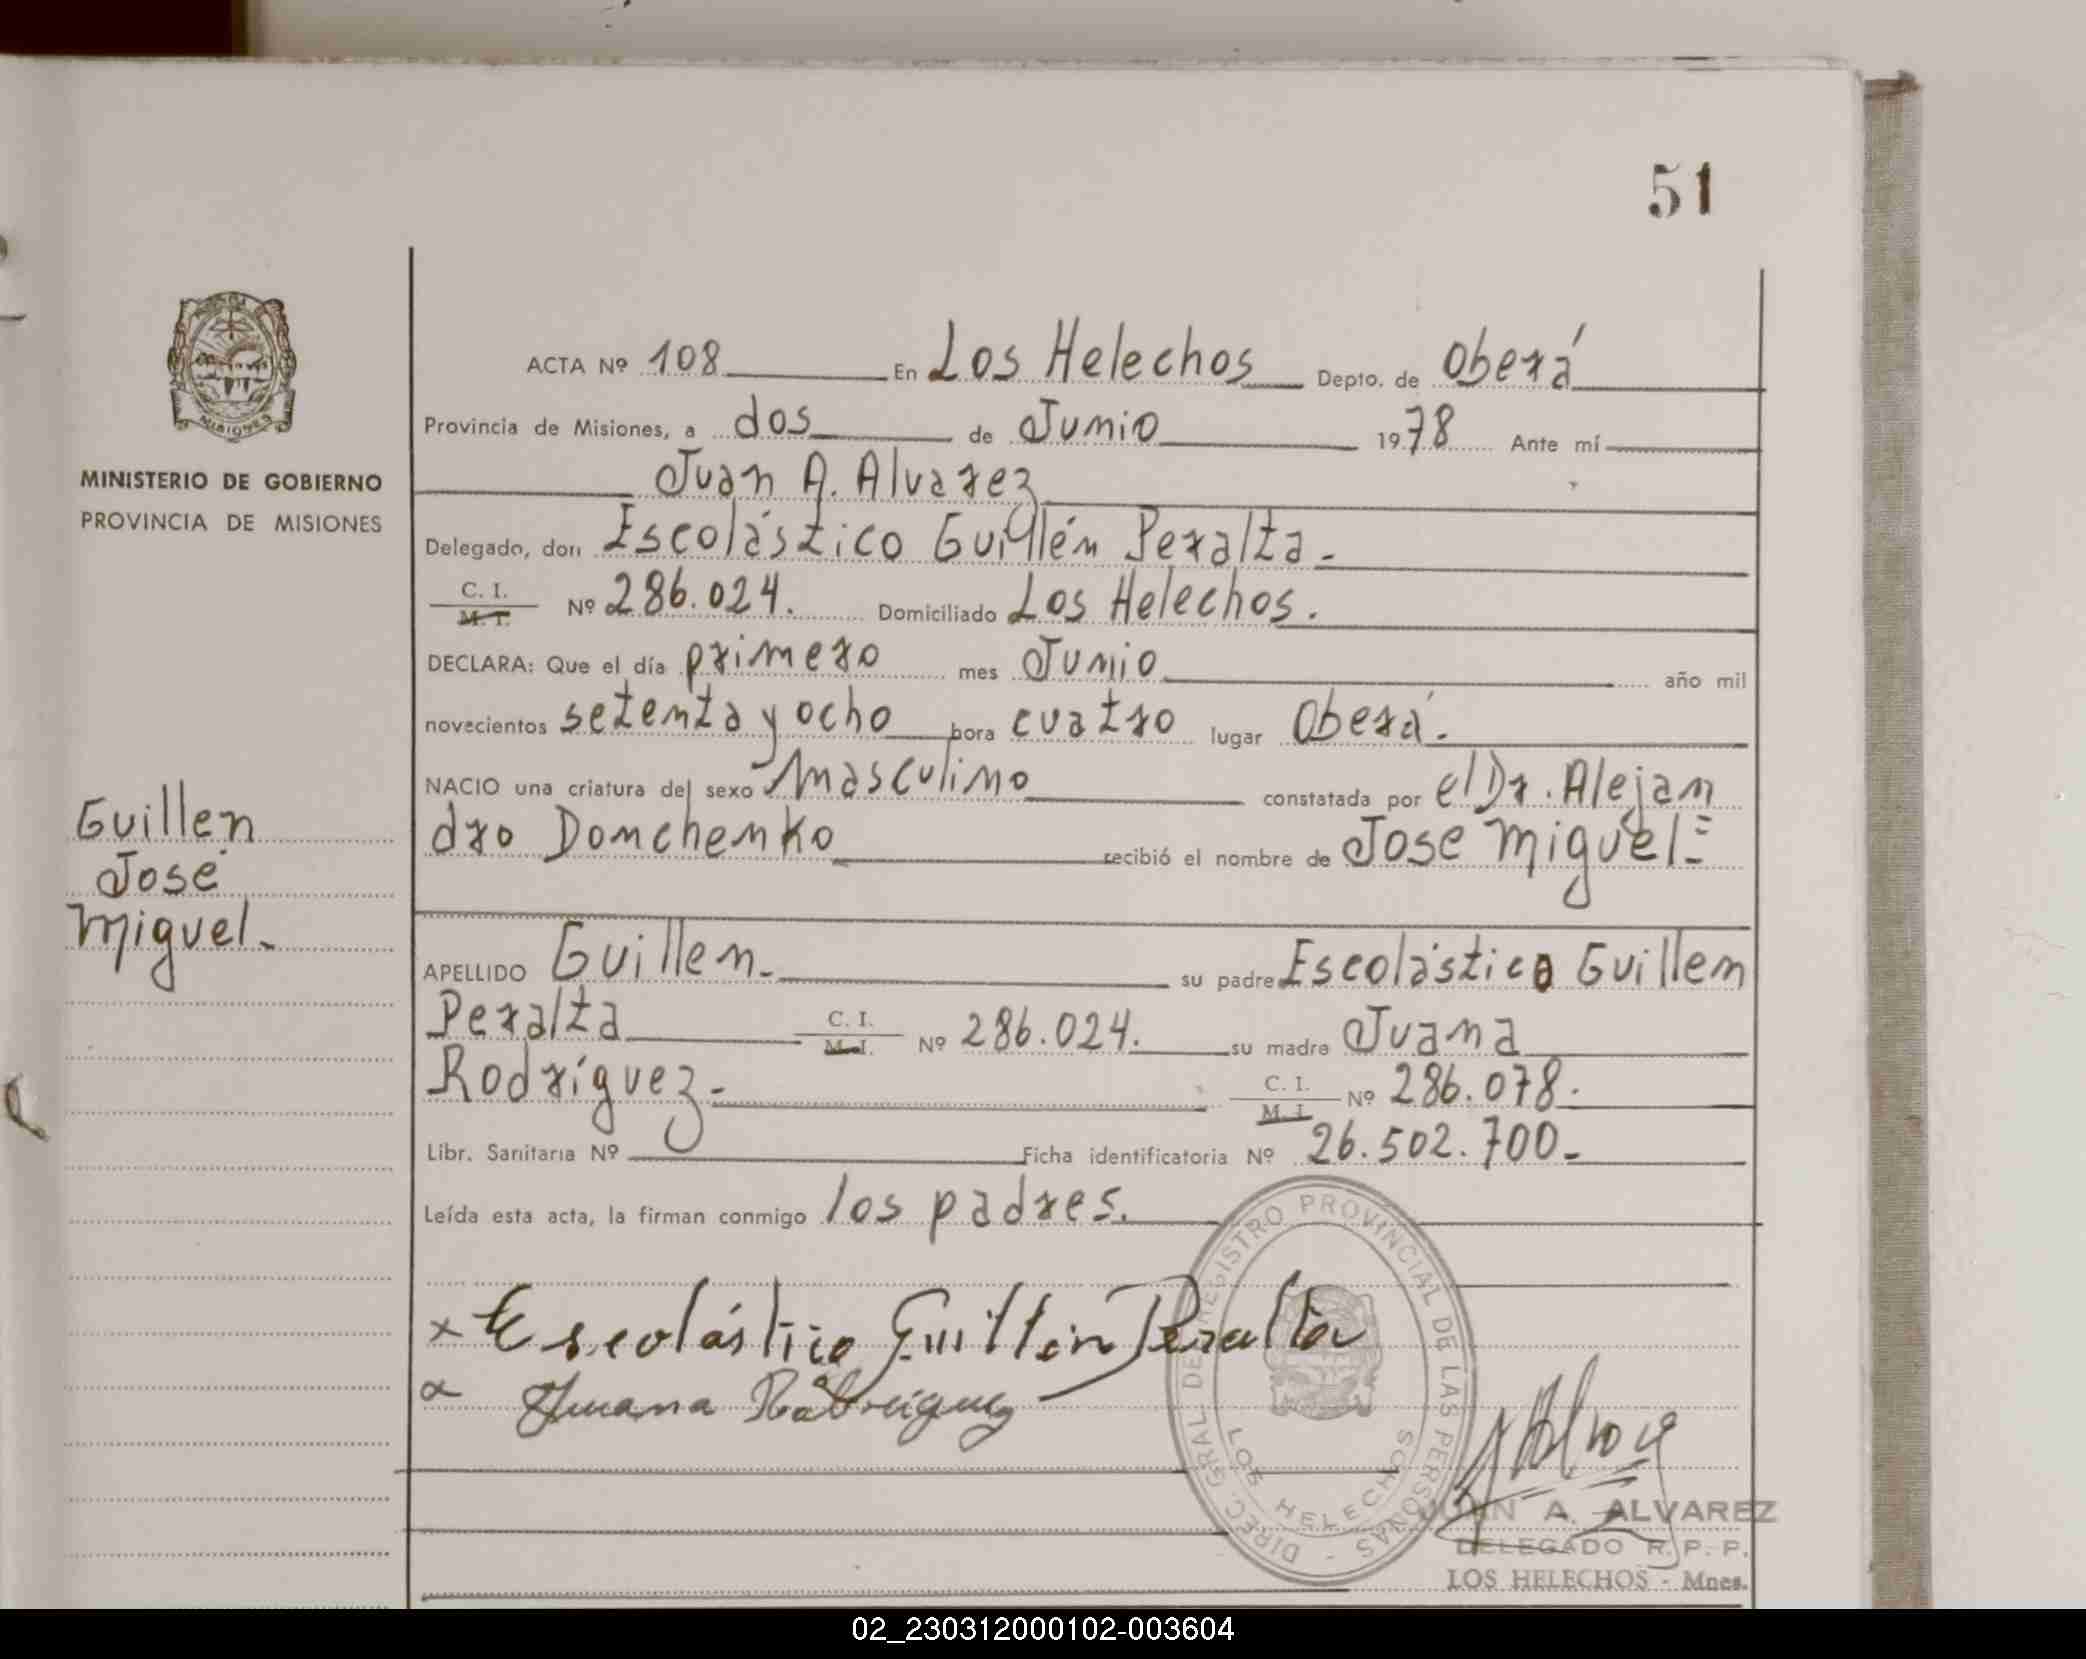 51
ACTA Nº 108 En Los Helechos Depto. de Oberá
Provincia de Misiones, a dos de Junio 1978 Ante mí
Juan A. Alvarez
Delegado, don Escolástico Guillén Peralta.
C. I.
M. I. Nº 286.024. Domiciliado Los Helechos.
DECLARA: Que el día primero mes Junio año mil
novecientos setenta y ocho hora cuatro lugar Oberá.
NACIO una criatura del sexo masculino constatada por el Dr. Alejan
dro Domchenko recibió el nombre de Jose Miguel=
APELLIDO Guillen. su padre Escolástico Guillen
Peralta C. I.
M. I. Nº 286.024. su madre Juana
Rodríguez- C. I.
M. I. Nº 286.078.
Libr. Sanitaria Nº Ficha identificatoria Nº 26.502.700-
Leída esta acta, la firman conmigo los padres.
x Escolástico Guillén Peralta
Juana Rodriguez
DIREC. GRAL. DE REGISTRO PROVINCIAL DE LAS PERSONAS -
LOS HELECHOS
JUAN A. ALVAREZ
DELEGADO R. P. P.
LOS HELECHOS - Mnes.
MISIONES
MINISTERIO DE GOBIERNO
PROVINCIA DE MISIONES
Guillén
José
Miguel-
02_230312000102-003604